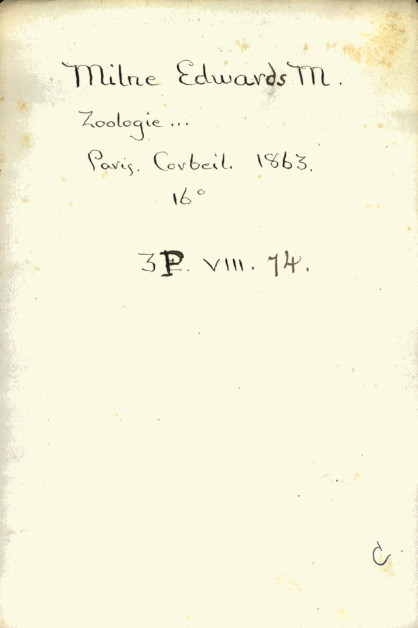 Milne Edwards M.
Zoologie...
Paris. Corbeil. 1863.
16°
3 P. VIII. 74.
C